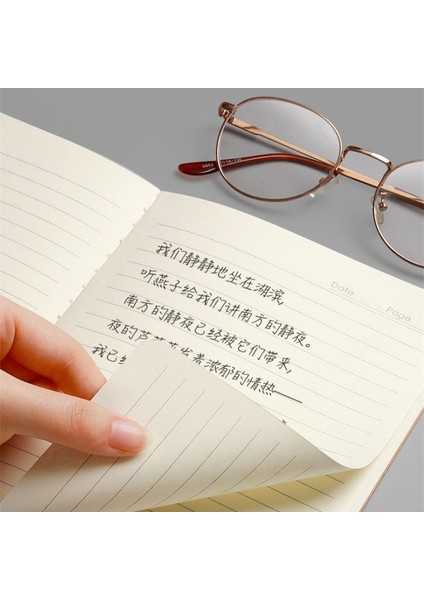 Date
Page
我们静静地坐在湖滨,
听燕子给我们讲南方的静夜。
南方的静夜已经被它们带来,
夜的芦苇蒸发着浓郁的情热——
我已经